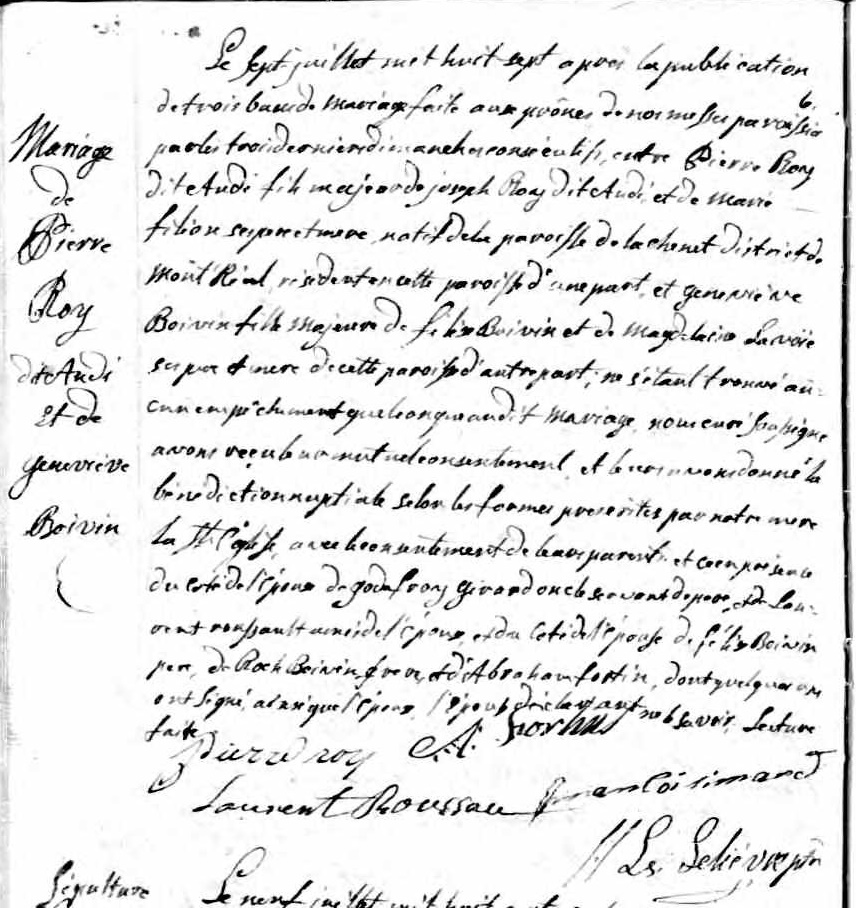 Mariage
de
Pierre
Roy
dit Audi
Et de
genevieve
Boivin
Le Sept juillet mil huit sept apres la publication
de trois bans de mariage faite aux prônes de nos messes paroissia
par les trois derniers dimanches consécutifs, entre Pierre Roy
dit Audi fils majeur de joseph Roy dit Audi, et de Marie
filion ses pere et mere, natif de la paroisse de lachenet district de
Mont Réal, résident en cette paroisse d'une part, et genevieve
Boivin fille Majeure de felix Boivin et de Magdelaine Lavoie
ses pere et mere de cette paroisse d'autre part; ne s'étant trouvé au-
cun empêchement quelconque audit Mariage, nous curé soussigné
avons reçu leur mutuel consentement, et leur avons donné la
bénédiction nuptiale selon les formes prescrites par notre mere
la Ste Eglise, avec le consentement de leurs parents et ce en présence
du coté de l'époux de godefroy Girard oncle servant de pere, et de Lau-
rent roussault ami de l'époux, et du coté de l'épouse de félix Boivin
pere, de Roch Boivin frere, et d'Abraham fortin, dont quelques uns
ont signé, ainsi que l'époux, l'épouse déclarant ne le savoir. Lecture
faite
Pierre roy A. fortin
Laurent Roussau françois simard
Ls. Leliévre ptre
Sépulture
Le neuf juillet mil huit